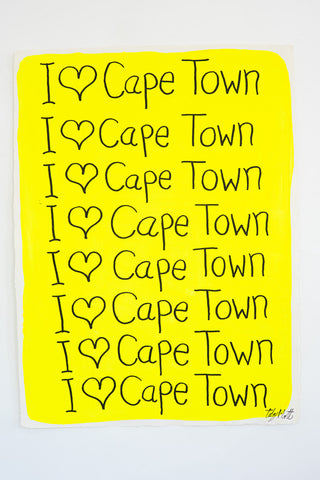 I ♡ Cape Town
I ♡ Cape Town
I ♡ Cape Town
I ♡ Cape Town
I ♡ Cape Town
I ♡ Cape Town
I ♡ Cape Town
I ♡ Cape Town